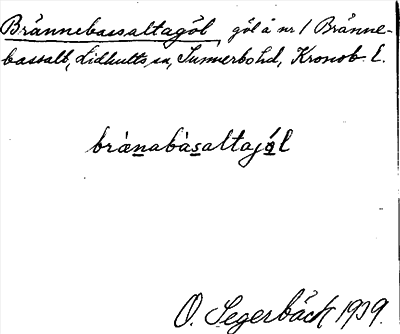 Brännebassaltagöl, göl å nr 1 Bränne-
bassalt, Lidhults sn, Sunnerbo hd, Kronob. l.
brä̀nabàsaltajö́l
O. Segerbäck 1939.